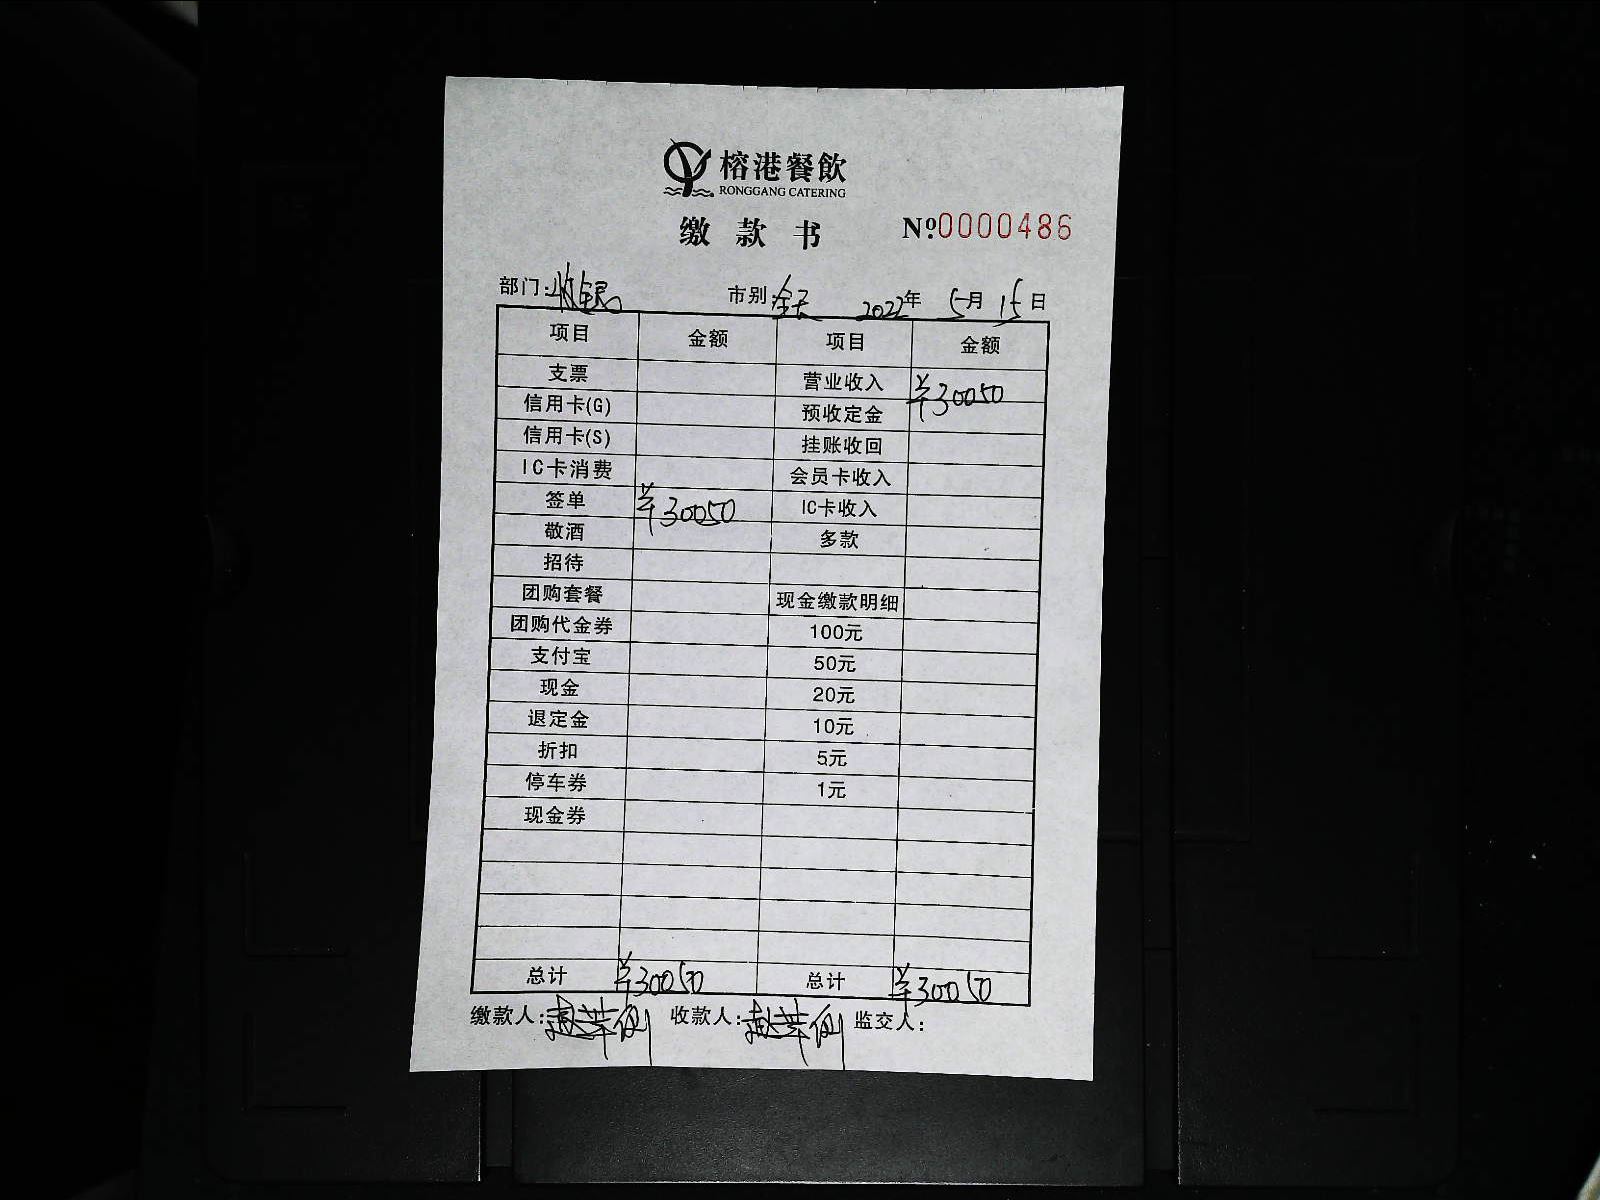 榕港餐飲
RONGGANG CATERING
缴款书 №0000486
部门:收银 市别:全天 2022年 5月 15日
项目 金额 项目 金额
支票 营业收入 ¥30050
信用卡(G) 预收定金
信用卡(S) 挂账收回
IC卡消费 会员卡收入
签单 ¥30050 IC卡收入
敬酒 多款
招待
团购套餐 现金缴款明细
团购代金券 100元
支付宝 50元
现金 20元
退定金 10元
折扣 5元
停车券 1元
现金券
总计 ¥30050 总计 ¥30050
缴款人: 收款人: 监交人: